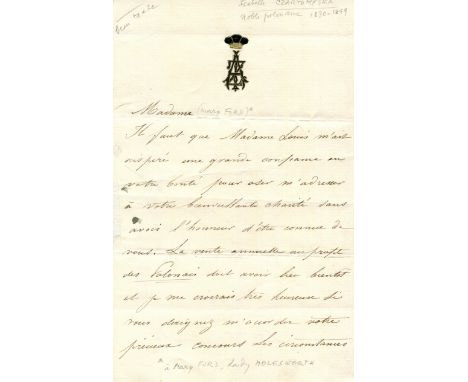 Isabelle CZARTORYSKA
Noble polonaise 1830-1899
Madame (Mary Ford)*
Il faut que Madame Louis m'ait
inspiré une grande confiance en
votre bonté pour oser m'adresser
à votre bienveillante charité sans
avoir l'honneur d'être connue de
vous. La vente annuelle au profit
des Polonais doit avoir lieu bientôt
et je me croirais très heureuse si
vous daignez m'accorder votre
précieux concours les circonstances
* à Mary FORD, Lady MOLESWORTH